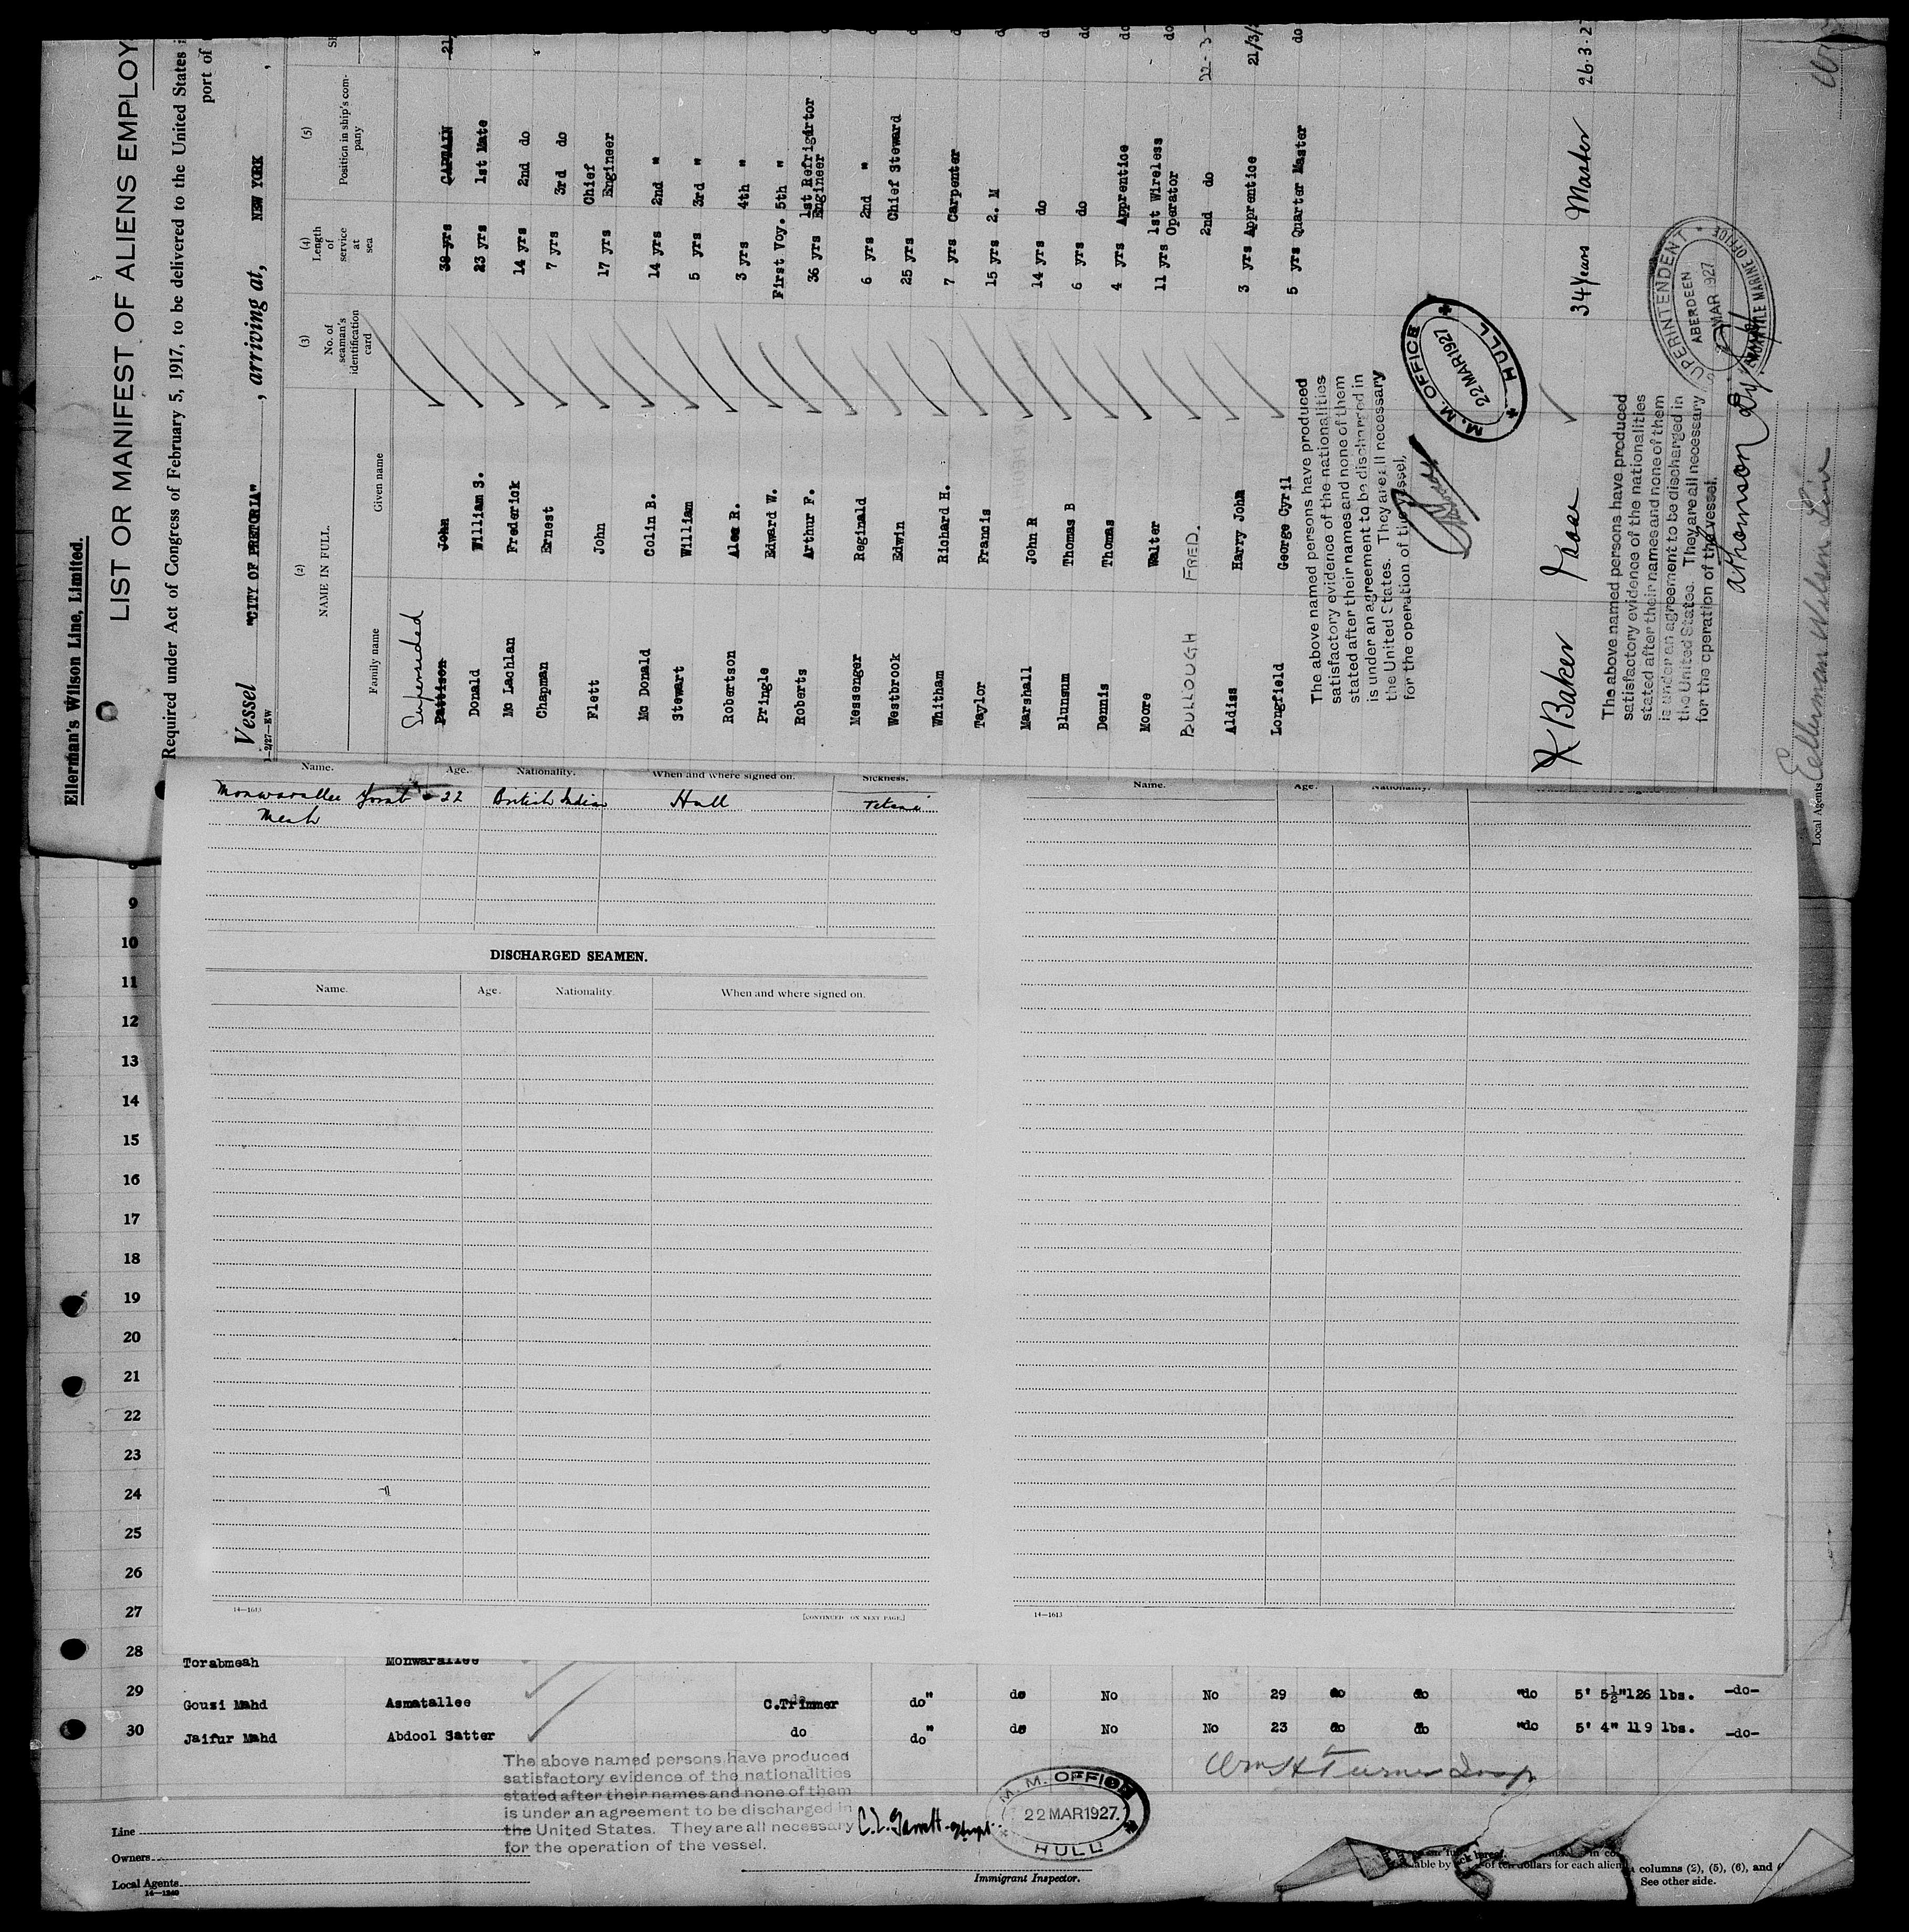 Ellerman's Wilson Line, Limited.
LIST OR MANIFEST OF ALIENS EMPLOY
Required under Act of Congress of February 5, 1917, to be delivered to the United States
port of
Vessel "CITY OF PRETORIA" , arriving at, NEW YORK ,
1-2/27-EW
(2) (3) (4) (5)
NAME IN FULL. No. of seaman's identification card Length of service at sea Position in ship's company
Family name Given name
Superseded
Pattison John 38 yrs CAPTAIN 21
Donald William S. 23 yrs 1st Mate
Mc Lachlan Frederick 14 yrs 2nd do do
Chapman Ernest 7 yrs 3rd do do
Flett John 17 yrs Chief Engineer
Mc Donald Colin B. 14 yrs 2nd " do
Stewart William 5 yrs 3rd " do
Robertson Alex R. 3 yrs 4th " do
Pringle Edward W. First Voy. 5th "
Roberts Arthur F. 36 yrs 1st Refrigirtor Engineer
Messenger Reginald 6 yrs 2nd " do
Westbrook Edwin 25 yrs Chief Steward
Whitham Richard H. 7 yrs Carpenter do
Taylor Francis 15 yrs 2. M do
Marshall John R 14 yrs do do
Blunsum Thomas B 6 yrs do do
Dennis Thomas 4 yrs Apprentice do
Moore Walter 11 yrs 1st Wireless Operator do
BULLOUGH FRED. 2nd do 22-3-
Aldiss Harry John 3 yrs Apprentice 21/3/
Longfield George Cyril 5 yrs Quarter Master do
The above named persons have produced
satisfactory evidence of the nationalities
stated after their names and none of them
is under an agreement to be discharged in
the United States. They are all necessary
for the operation of the vessel.
M. M. OFFICE
22 MAR 1927
HULL
Baker Isaac 34 Years Master 26.3.2
The above named persons have produced
satisfactory evidence of the nationalities
stated after their names and none of them
is under an agreement to be discharged in
the United States. They are all necessary
for the operation of the vessel.
SUPERINTENDENT
ABERDEEN
MAR 1927
MERCANTILE MARINE OFFICE
Local Agents Ellerman Wilson Line
Name. Age. Nationality. When and where signed on. Sickness.
Monwarallee 22 British Indian Hull
Meah
DISCHARGED SEAMEN.
Name. Age. Nationality. When and where signed on.
14—1613 [CONTINUED ON NEXT PAGE.]
Name. Age. Nationality.
14—1613
9
10
11
12
13
14
15
16
17
18
19
20
21
22
23
24
25
26
27
28 Torabmeah Monwarallee
29 Gouzi Mahd Asmatallee C.Trimmer do" do No No 29 do do "do 5' 5½" 126 lbs. -do-
30 Jaifur Mahd Abdool Satter do do" do No No 23 do do "do 5' 4" 119 lbs. -do-
The above named persons have produced
satisfactory evidence of the nationalities
stated after their names and none of them
is under an agreement to be discharged in
the United States. They are all necessary
for the operation of the vessel.
M. M. OFFICE
22 MAR 1927
HULL
Line
Owners
Local Agents
14—1240
Immigrant Inspector.
of ten dollars for each alien
columns (2), (5), (6), and
See other side.